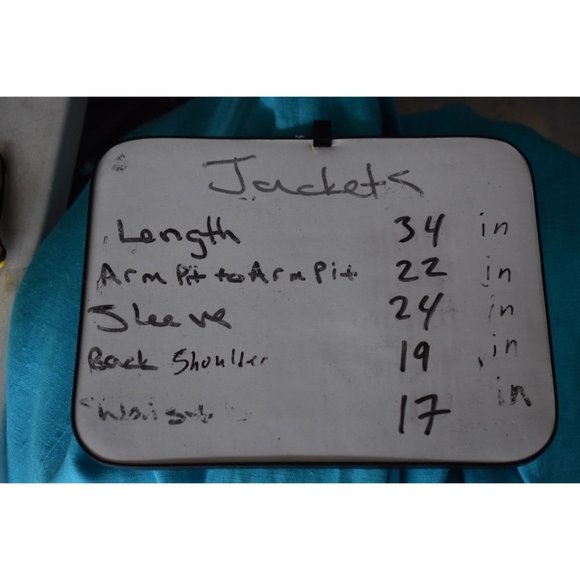 Jackets
Length 34 in
Arm Pit to Arm Pit 22 in
Sleeve 24 in
Back Shoulder 19 in
Waist 17 in